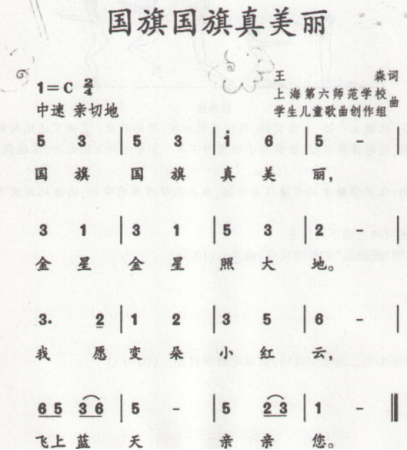 国旗国旗真美丽
1=C 2/4
中速 亲切地
王 淼词
上海第六师范学校
学生儿童歌曲创作组 曲
5 3 | 5 3 | i - | 5 - |
国 旗 国 旗 真 美 丽,
3 1 | 3 1 | 5 3 | 2 - |
金 星 金 星 照 大 地。
3. 2 | 1 2 | 3 5 | 6 - |
我 愿 变 朵 小 红 云,
6 5 3 6 | 5 - | 5 2 3 | 1 - ‖
飞上 蓝 天 亲 亲 您。